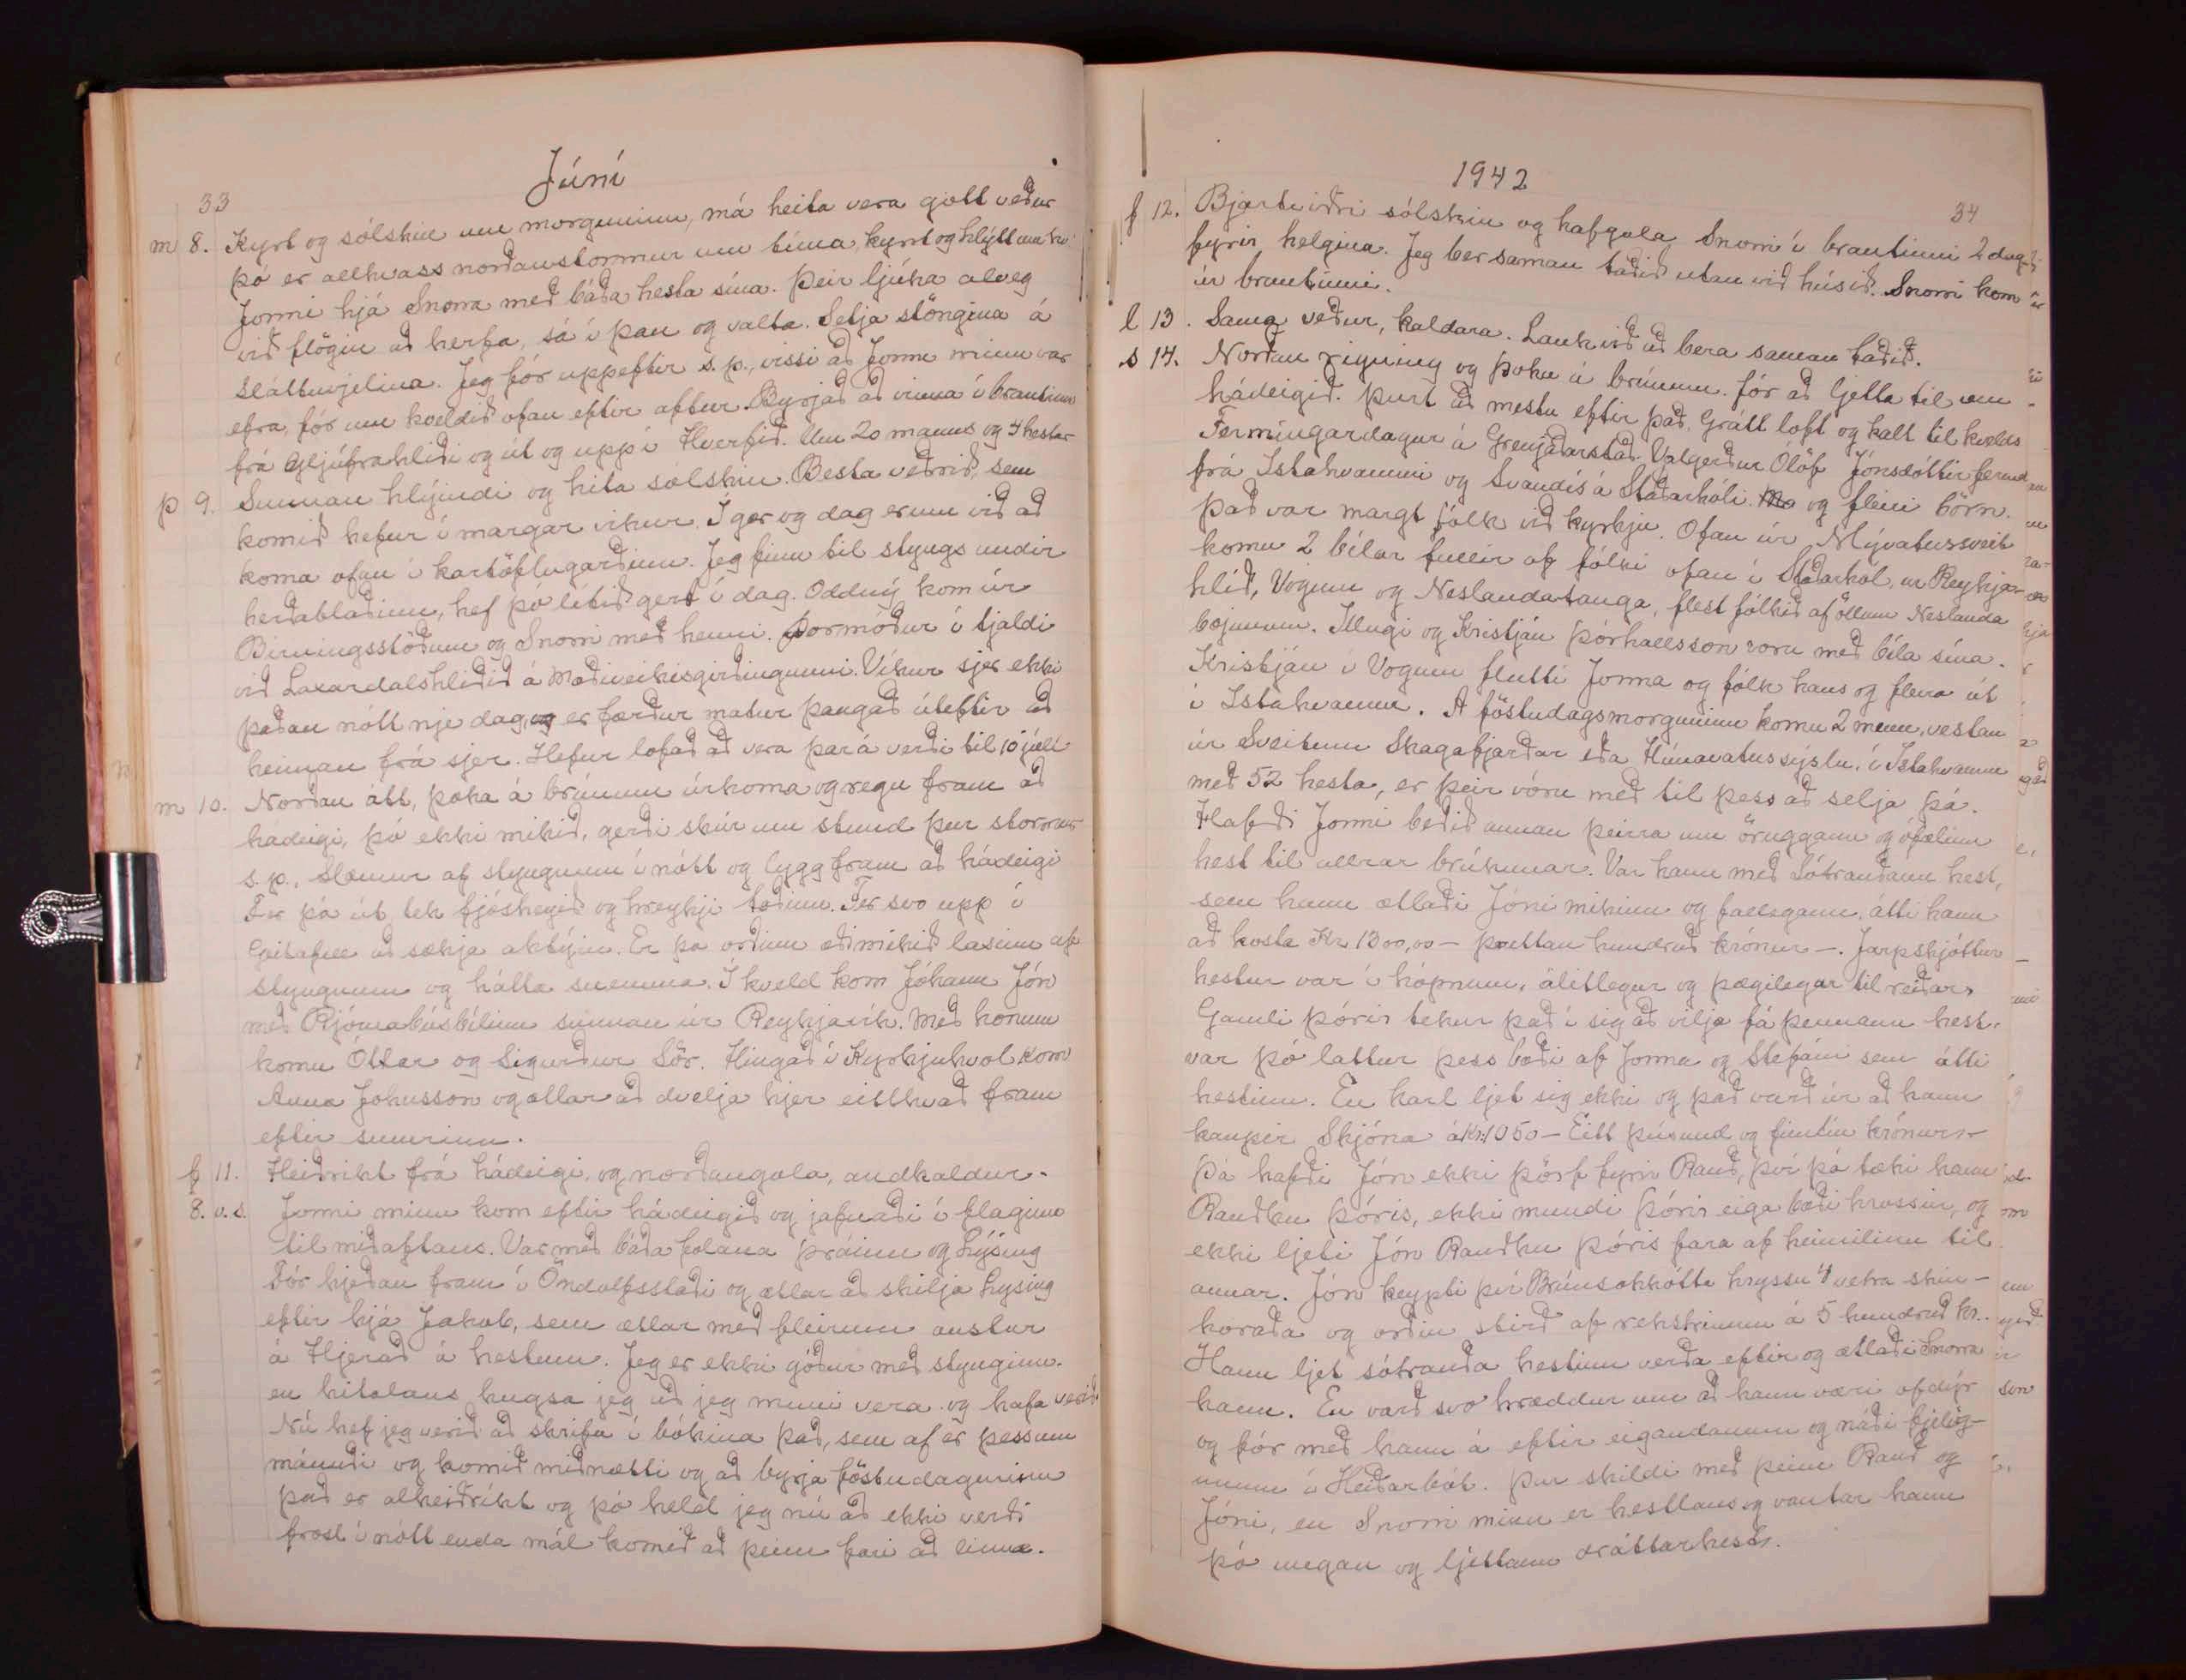 Júní
33
m 8. Kyrt og sólskin um morguninn, má heita vera gott veður
þó er allhvass norðanstormur um tíma, kyrt og hlýtt um kv.
Jonni hjá Snorra með báða hesta sína. Þeir ljúka alveg
við flögin að herfa, sá í þau og valta. Setja stöngina á
sláttuvjelina. Jeg fór uppeftir s.p., vissi að Jonni minn var
efra, fór um kveldið ofan eftir aftur. Byrjað að vinna í brautinni
frá Gljúfrahliði og út og upp í Hverfið. Um 20 manns og 4 hestar
þ 9. Sunnan hlýindi og hita sólskin. Besta veðrið, sem
komið hefur í margar vikur. Í gær og dag erum við að
koma ofan í kartöflugarðinn. Jeg finn til styngs undir
herðablaðinu, hef þó lítið gert í dag. Oddný kom úr
Birningsstöðum og Snorri með henni. Þormóður í tjaldi
við Laxardalshliðið á mæðiveikisgirðingunni. Víkur sjer ekki
þaðan nótt nje dag, og er færður matur þangað úteftir að
heiman frá sjer. Hefur lofað að vera þar á verði til 10 júlí
m 10. Norðan átt, þoka á brúnum úrkoma og regn fram að
hádeigi, þó ekki mikið, gerði skúr um stund þur stormur
s.p., slæmur af styngnum í nótt og lygg fram að hádeigi
Fer þá út, tek fjósheyið og hreykji töðunni. Fer svo upp í
Geitafell að sækja aktýin. Er þá orðinn æðimikið lasinn af
styngnum og hátta snemma. Í kveld kom Jóhann Jón
með Rjómabúsbílinn sunnan úr Reykjavík. Með honum
komu Óttar og Sigurður Sör. Hingað í Kyrkjuhvol kom
Anna Johnsson og ætlar að dvelja hjer eitthvað fram
eftir sumrinu.
f 11. Heiðríkt frá hádeigi, og norðangola, andkaldur.
8. v.s. Jonni minn kom eftir hádeigið og jafnaði í flaginu
til miðaftans. Var með báða folana Þráinn og Lýsing
Fór hjeðan fram í Öndólfsstaði og ætlar að skilja Lýsing
eftir hjá Jakob, sem ætlar með fleirum austur
á Hjerað á hestum. Jeg er ekki góður með stynginn.
en hitalaus hugsa jeg að jeg muni vera og hafa verið.
Nú hef jeg verið að skrifa í bókina það, sem af er þessum
mánuði og komið miðnætti og að byrja föstudagurinn
það er alheiðríkt og þó held jeg nú að ekki verði
frost í nótt enda mál komið að þeim fari að linna.
1942
34
f 12. Bjartviðri sólskin og hafgola Snorri í brautinni 2 dag
fyrir helgina. Jeg ber saman taðið utan við húsið. Snorri kom
úr brautinni.
l 13. Sama veður, kaldara. Lauk við að bera saman taðið.
s 14. Norðan rigning og þoka á brúnum. fór að ljetta til um
hádeigið. Þurt að mestu eftir það. Grátt loft og kalt til kvelds
Fermingardagur á Grenjaðarstað. Valgerður Ólöf Jónsdóttir fermd
frá Ístahvammi og Svandís á Staðarhóli. og fleiri börn.
það var margt fólk við kyrkju. Ofan úr Mývatnssveit
komu 2 bílar fullir af fólki ofan í Staðarhól, úr Reykja-
hlíð, Vogum og Neslandatanga, flest fólkið af öllum Neslanda
bæjunum. Illugi og Kristján Þórhallsson voru með bíla sína.
Kristján í Vogum flutti Jonna og fólk hans og fleira út
í Ístahvamm. Á föstudagsmorguninn komu 2 menn, vestan
úr Sveitum Skagafjarðar eða Húnavatnssýslu, í Ístahvamm
með 52 hesta, er þeir vóru með til þess að selja þá.
Hafði Jonni beðið annan þeirra um öruggann og ófælinn
hest til allrar brúkunar. Var hann með sótrauðann hest,
sem hann ætlaði Jóni mikinn og fallegann, átti hann
að kosta Kr. 1300,00 — þrettán hundrað krónur —. Jarpskjóttur
hestur var í hópnum, álitlegur og þægilegur til reiðar,
Gamli Þórir tekur það í sig að vilja fá þennann hest,
var þó lattur þess bæði af Jonna og Stefáni sem átti
hestinn. En karl ljet sig ekki og það varð úr að hann
kaupir Skjóna á Kr. 1050 — Eitt þúsund og fimtíu krónur —
Þá hafði Jón ekki þörf fyrir Rauð, því þá tæki hann
Rauðku Þóris, ekki mundi Þórir eiga bæði hrossin, og
ekki ljeti Jón Rauðku Þóris fara af heimilinu til
annar. Jón keypti því Brúnsokkótta hryssu 4 vetra skin-
horaða og orðin stirð af rekstrinum á 5 hundruð kr..
Hann ljet sótrauða hestinn verða eftir og ætlaði Snorra
hann. En varð svo hræddur um að hann væri ofdýr
og fór með hann á eftir eigandanum og náði fjelög-
unum í Heiðarbót. Þar skildi með þeim Rauð og
Jóni, en Snorri minn er hestlaus og vantar hann
þó ungan og ljettann dráttarhest.